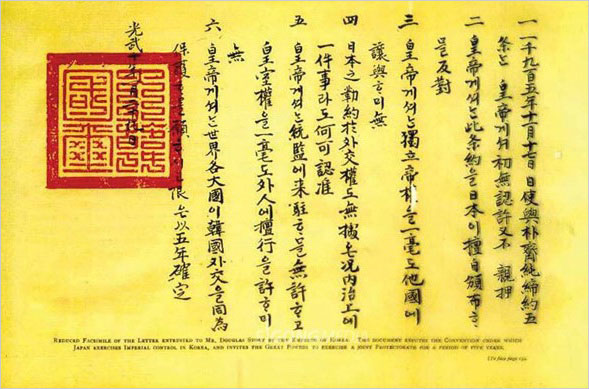 一 一千九百五年十一月十七日 日使與朴齊純締約五
条는 皇帝게셔 初無認許又不 親押
二 皇帝게셔는 此条約을 日本이 擅自頒布ᄒᆞ
믈反對
三 皇帝게셔는 獨立帝權을 一毫도 他國에
讓與ᄒᆞ미無
四 日本之勒約於外交權도 無據온况内治上에
一件事라도 何可認准
五 皇帝게셔는 統監에 来駐ᄒᆞ믈 無許ᄒᆞ고
皇室權을 一毫도 外人에 擅行을 許ᄒᆞ미
無
六 皇帝게셔는 世界各大國이 韓國外交을 同為
保護ᄒᆞ믈 願ᄒᆞ시고 限은 以五年確定
光武十年一月二十九日
REDUCED FACSIMILE OF THE LETTER ENTRUSTED TO MR. DOUGLAS STORY BY THE EMPEROR OF KOREA. THE DOCUMENT THE CONVENTION UNDER WHICH
JAPAN EXERCISES IMPERIAL CONTROL IN KOREA, AND INVITES THE GREAT POWERS TO EXERCISE A JOINT PROTECTORATE FOR A PERIOD OF FIVE YEARS.
[To face page